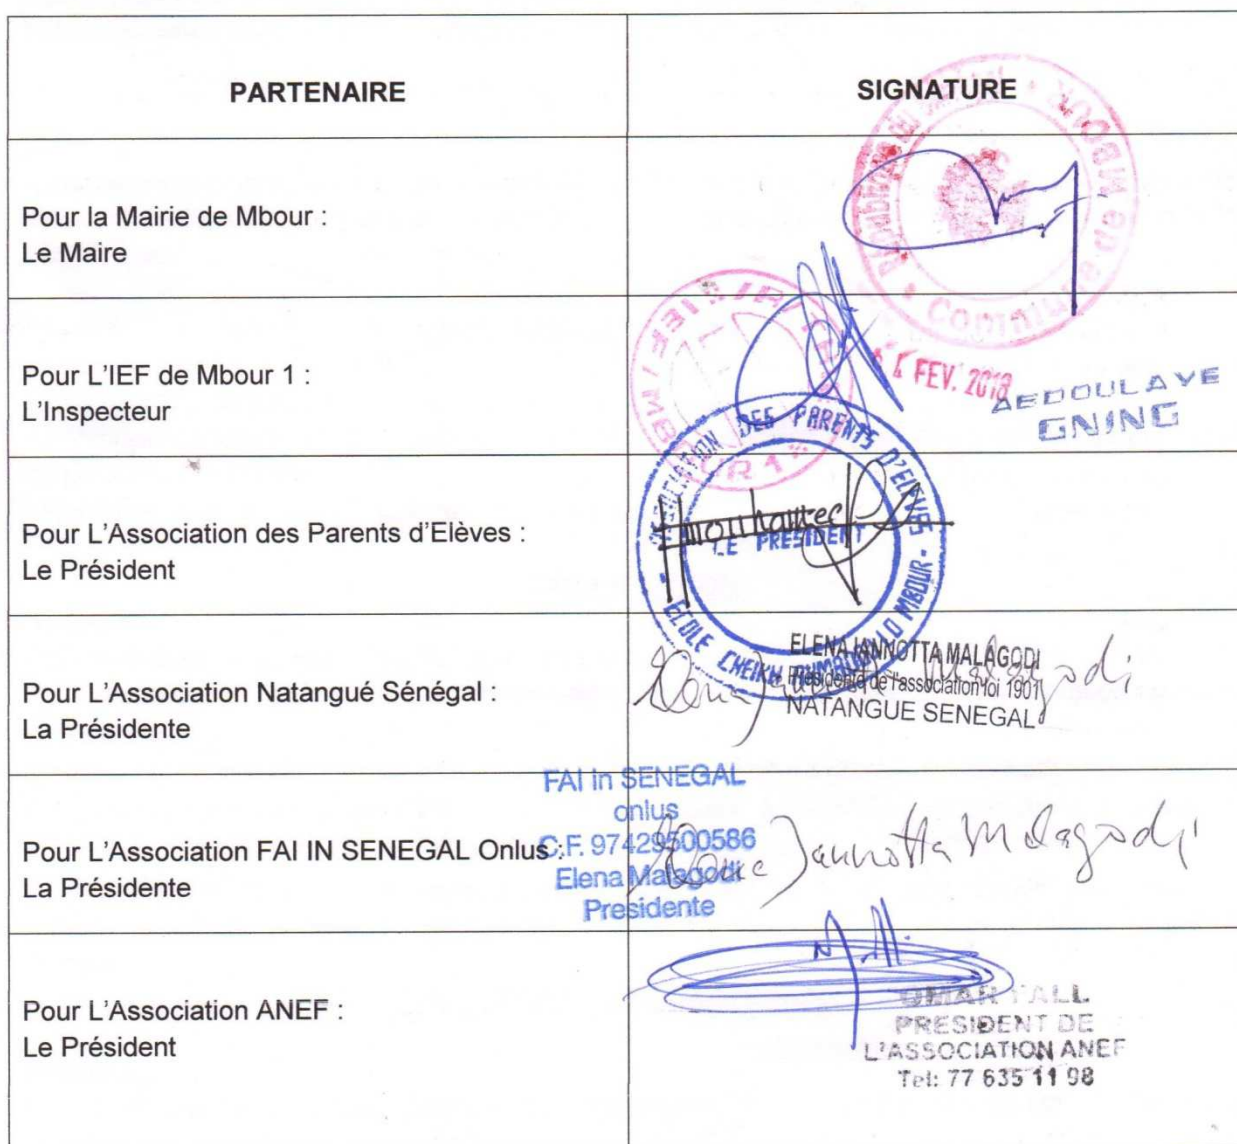 PARTENAIRE
SIGNATURE
Pour la Mairie de Mbour :
Le Maire
Commune de MBOUR
Pour L'IEF de Mbour 1 :
L'Inspecteur
FEV. 2018
ABDOULAYE
GNING
Pour L'Association des Parents d'Elèves :
Le Président
ASSOCIATION DES PARENTS D'ELEVES
LE PRESIDENT
ECOLE CHEIKH MBOUR
Pour L'Association Natangué Sénégal :
La Présidente
ELENA IANNOTTA MALAGODI
Presidente de l'association loi 1901
NATANGUE SENEGAL
FAI in SENEGAL
onlus
Pour L'Association FAI IN SENEGAL Onlus :
C.F. 97429500586
La Présidente
Elena Malagodi
Presidente
Elena Jannotta Malagodi
Pour L'Association ANEF :
Le Président
OMAR TALL
PRESIDENT DE
L'ASSOCIATION ANEF
Tel: 77 635 11 98